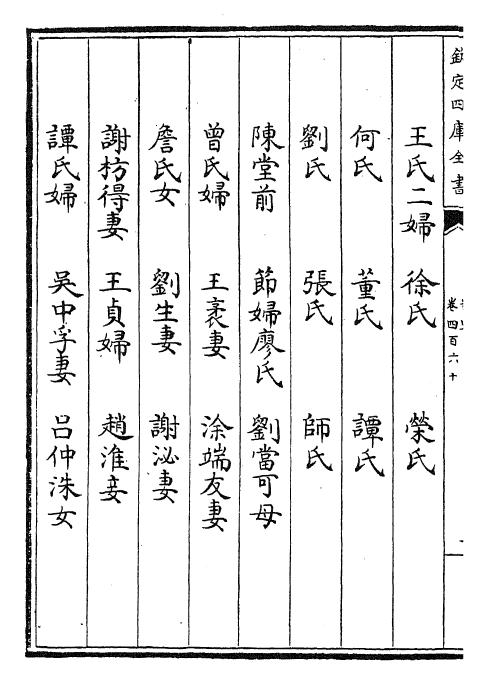 欽定四庫全書
卷四百六十
王氏二婦 徐氏 榮氏
何氏 董氏 譚氏
劉氏 張氏 師氏
陳堂前 節婦廖氏 劉當可母
曾氏婦 王袤妻 涂端友妻
詹氏女 劉生妻 謝泌妻
謝枋得妻 王貞婦 趙淮妾
譚氏婦 吳中孚妻 呂仲洙女